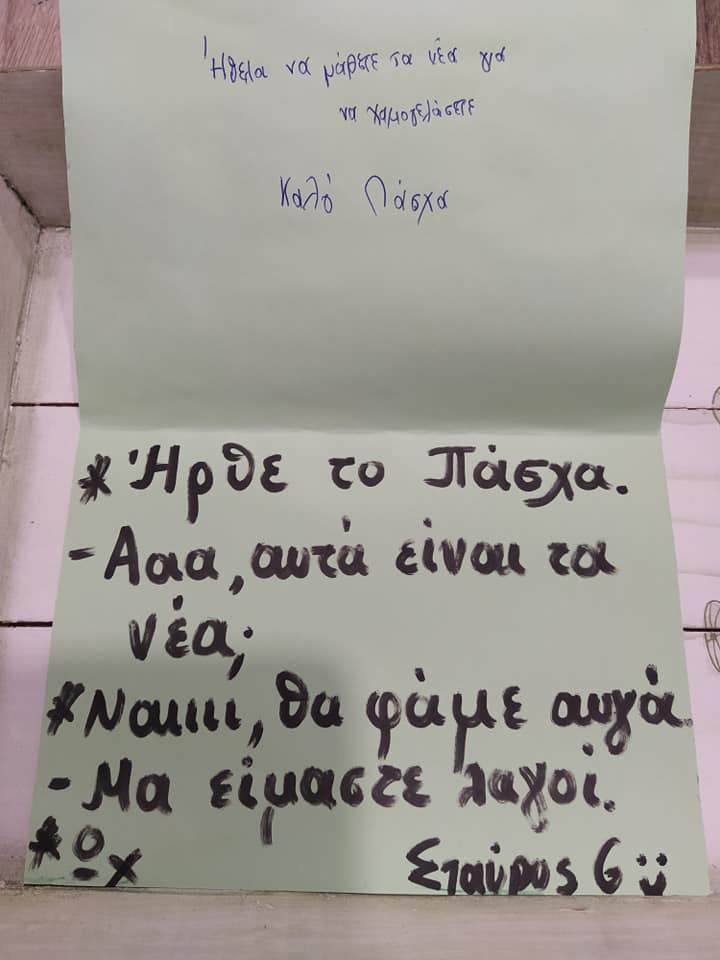 Ήθελα να μάθετε τα νέα για
να χαμογελάσετε
Καλό Πάσχα
* Ήρθε το Πάσχα.
- Ααα, αυτά είναι τα
νέα;
* Ναιιιι, θα φάμε αυγά.
- Μα είμαστε λαγοί.
* οχ
Σταύρος G ü